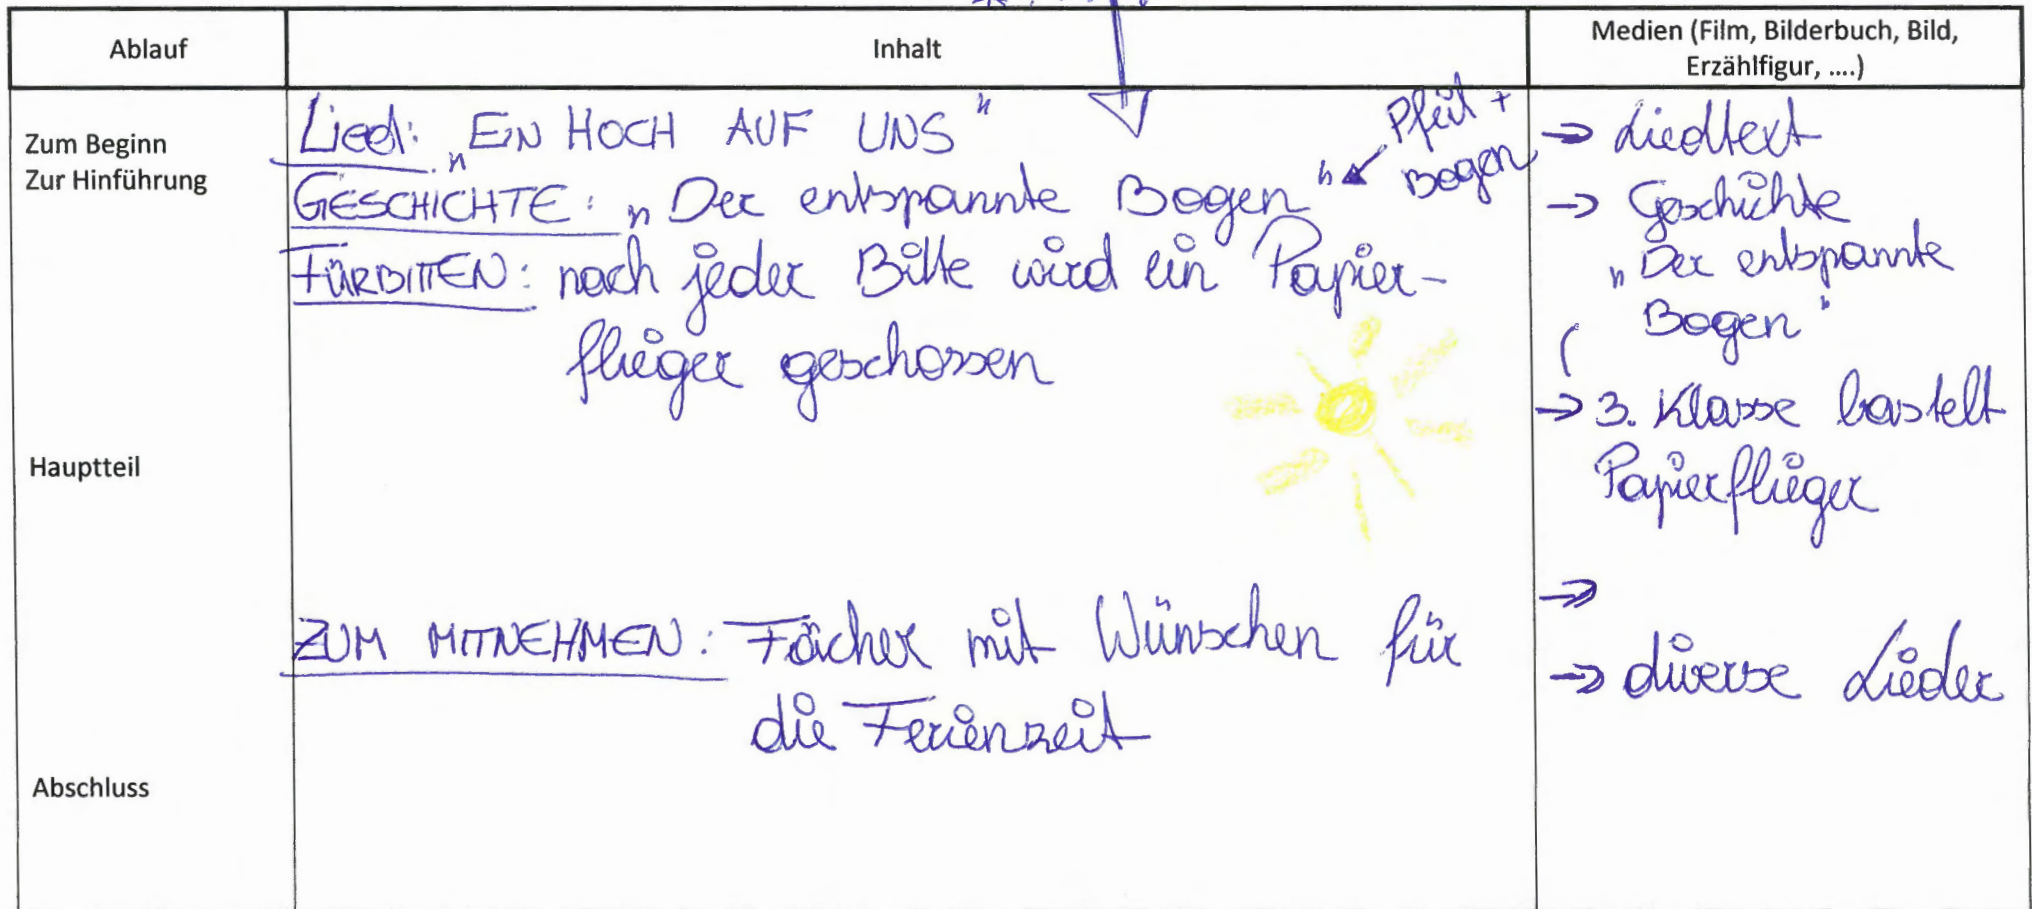 Ablauf
Inhalt
Medien (Film, Bilderbuch, Bild,
Erzählfigur, ....)
Zum Beginn
Zur Hinführung
Hauptteil
Abschluss
Lied: „EIN HOCH AUF UNS"
GESCHICHTE: „Der entspannte Bogen"
Pfeil +
Bogen
FÜRBITTEN: nach jeder Bitte wird ein Papier-
flieger geschossen
ZUM MITNEHMEN: Fächer mit Wünschen für
die Ferienzeit
→ Liedtext
→ Geschichte
„Der entspannte
Bogen"
→ 3. Klasse bastelt
Papierflieger
→
→ diverse Lieder